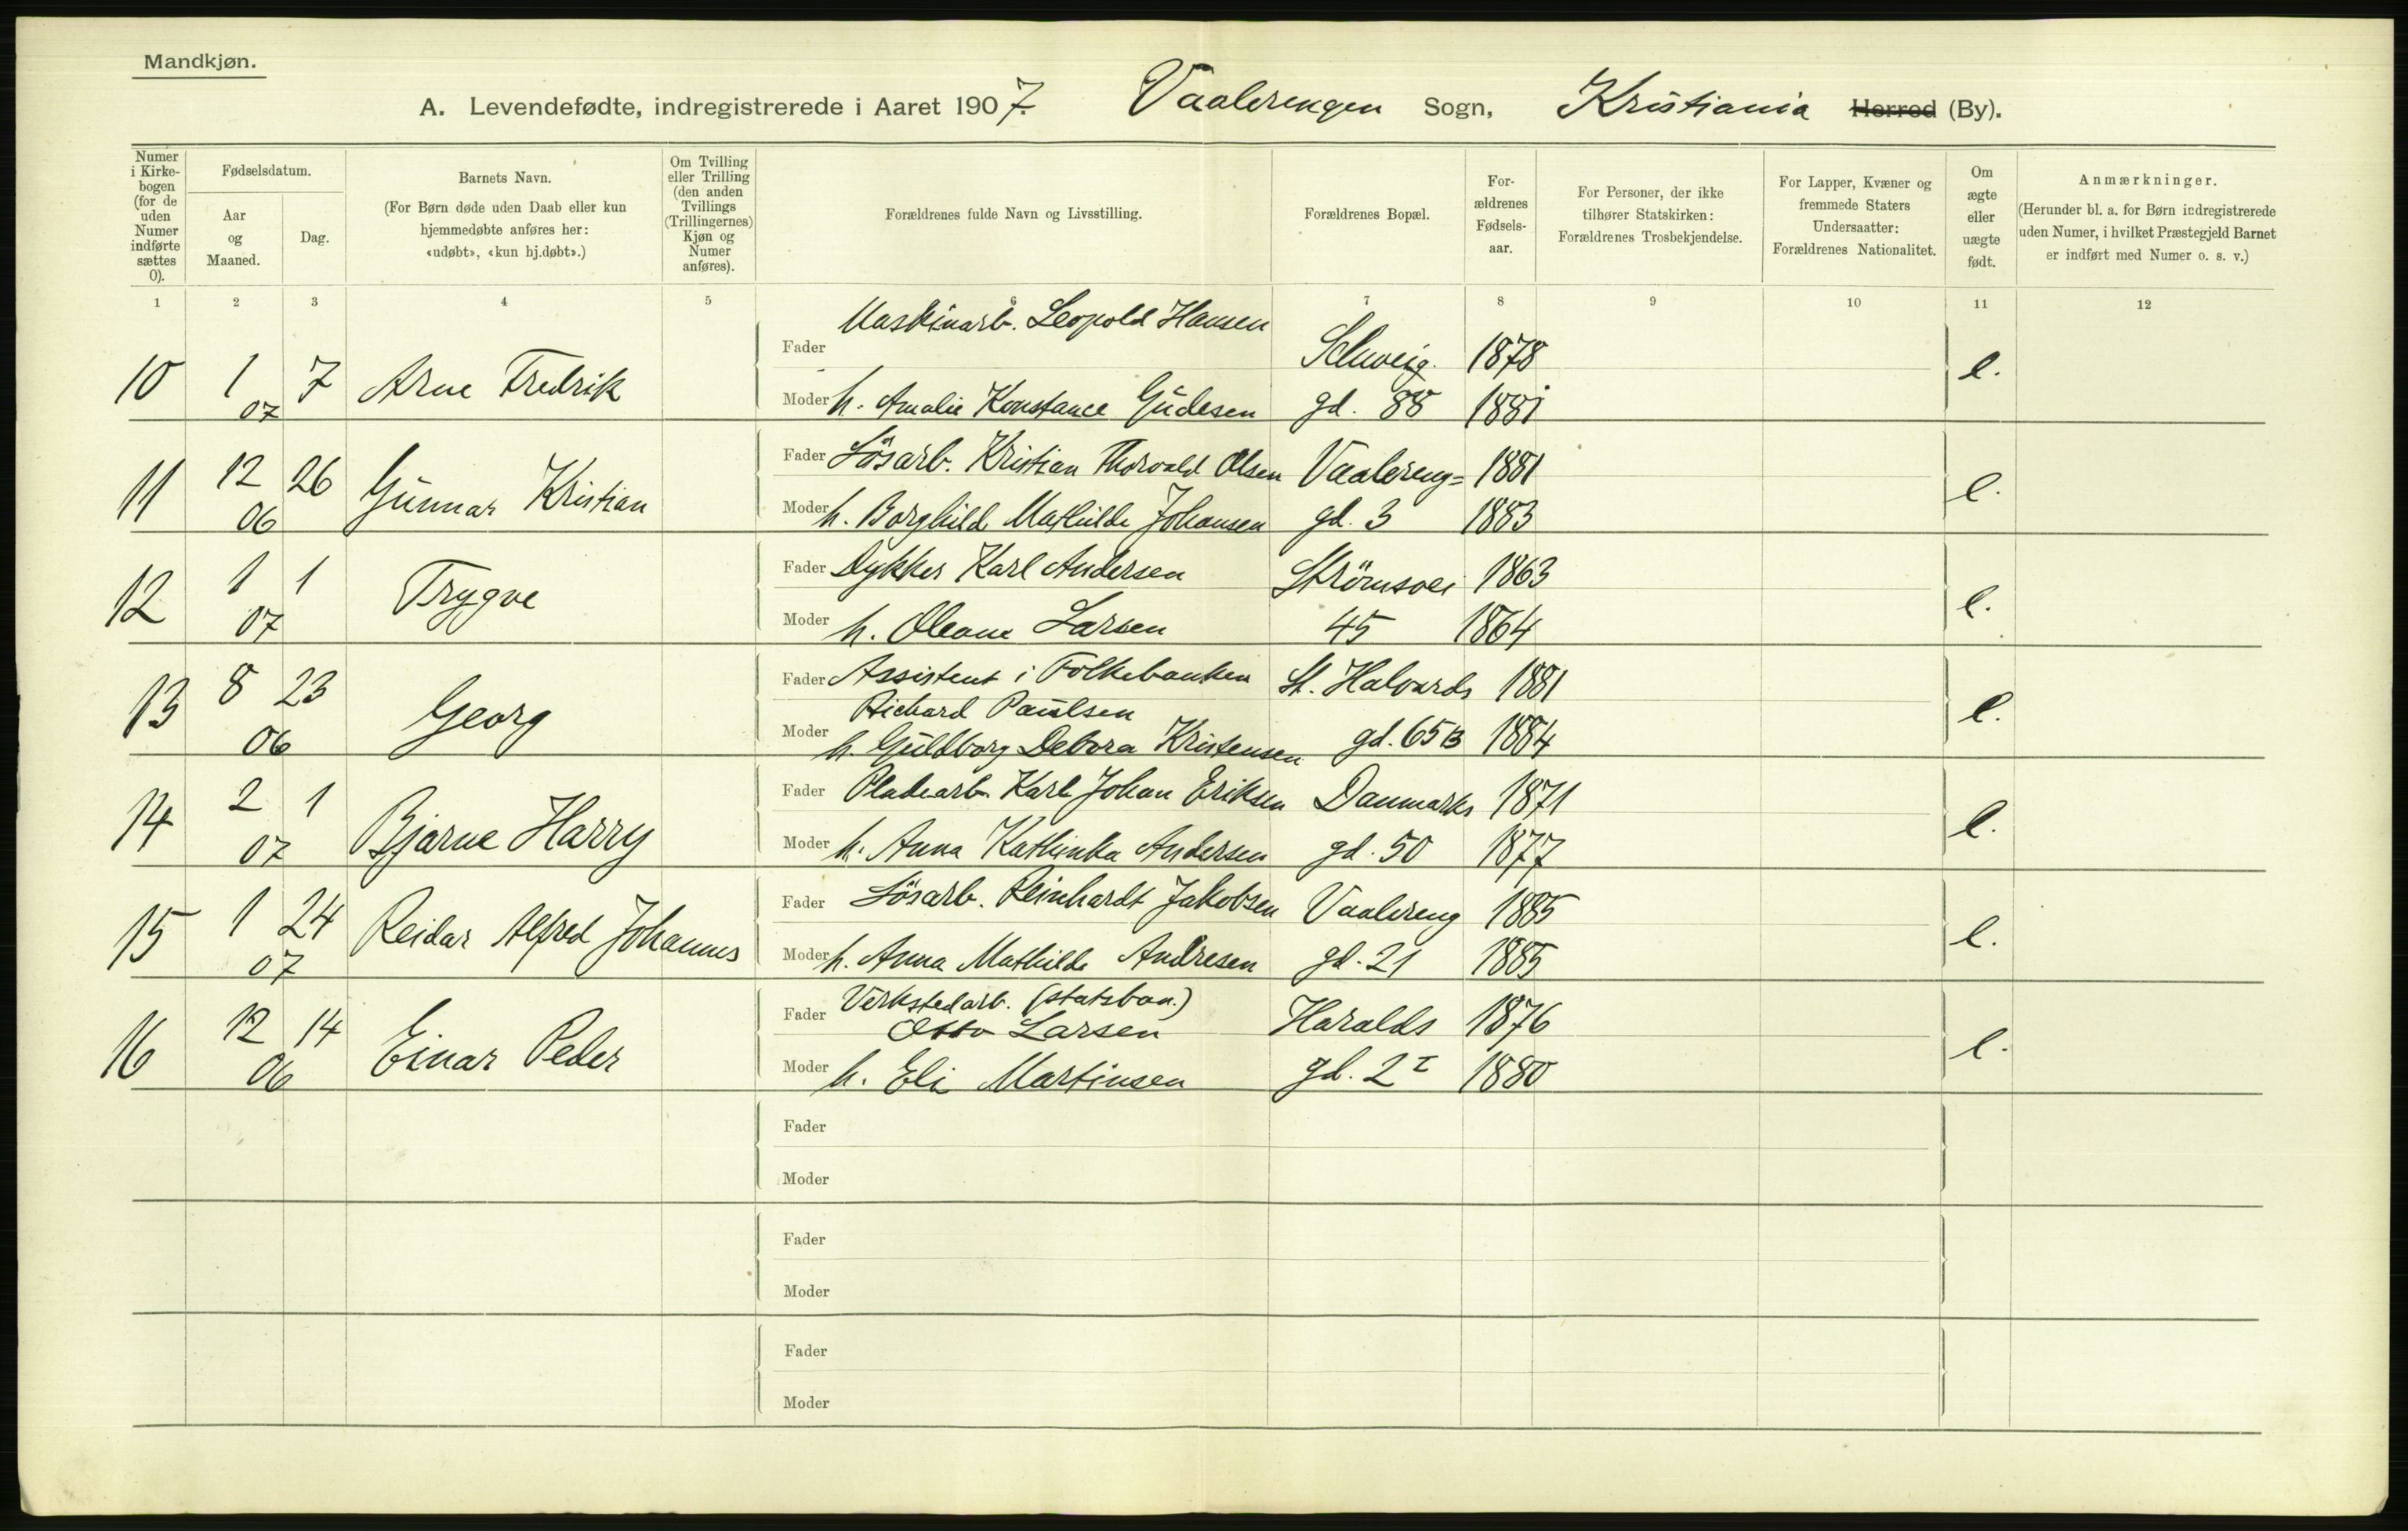 Mandkjøn.
A. Levendefødte, indregistrerede i Aaret 1907. Vaalerengen Sogn, Kristiania Herred (By).
Numer i Kirke-bogen (for de uden Numer indførte sættes 0).
Fødselsdatum.
Aar og Maaned.
Dag.
Barnets Navn.
(For Børn døde uden Daab eller kun
hjemmedøbte anføres her:
«udøbt», «kun hj.døbt».)
Om Tvilling
eller Trilling
(den anden
Tvillings
(Trillingernes)
Kjøn og
Numer
anføres).
Forældrenes fulde Navn og Livsstilling.
Forældrenes Bopæl.
For-
ældrenes
Fødsels-
aar.
For Personer, der ikke
tilhører Statskirken:
Forældrenes Trosbekjendelse.
For Lapper, Kvæner og
fremmede Staters
Undersaatter:
Forældrenes Nationalitet.
Om
ægte
eller
uægte
født.
Anmærkninger.
(Herunder bl. a. for Børn indregistrerede
uden Numer, i hvilket Præstegjeld Barnet
er indført med Numer o. s. v.)
1 2 3 4 5 6 7 8 9 10 11 12
10 1 07 7 Arne Fredrik e.
Fader Maskinarb. Leopold Hansen Schweig. 1878
Moder h. Amalie Konstance Gudesen gd. 88 1881
11 12 06 26 Gunnar Kristian e.
Fader Løsarb. Kristian Thorvald Olsen Vaalereng= 1881
Moder h. Borghild Mathilde Johansen gd. 3 1883
12 1 07 1 Trygve e.
Fader Dykker Karl Andersen Strømsvei 1863
Moder h. Oleane Larsen 45 1864
13 8 06 23 Georg e.
Fader Assistent i Folkebanken St. Halvards 1881
Richard Paulsen
Moder h. Guldborg Debora Kristensen gd. 65B 1884
14 2 07 1 Bjarne Harry e.
Fader Pladearb. Karl Johan Eriksen Danmarks 1871
Moder h. Anna Kathinka Andersen gd. 50 1877
15 1 07 24 Reidar Alfred Johannes e.
Fader Løsarb. Reinhardt Jakobsen Vaalereng 1885
Moder h. Anna Mathilde Andresen gd. 21 1885
16 12 06 14 Einar Peder e.
Fader Verkstedarb. (statsban.) Haralds 1876
Otto Larsen
Moder h. Eli Martinsen gd. 2 I 1880
Fader
Moder
Fader
Moder
Fader
Moder